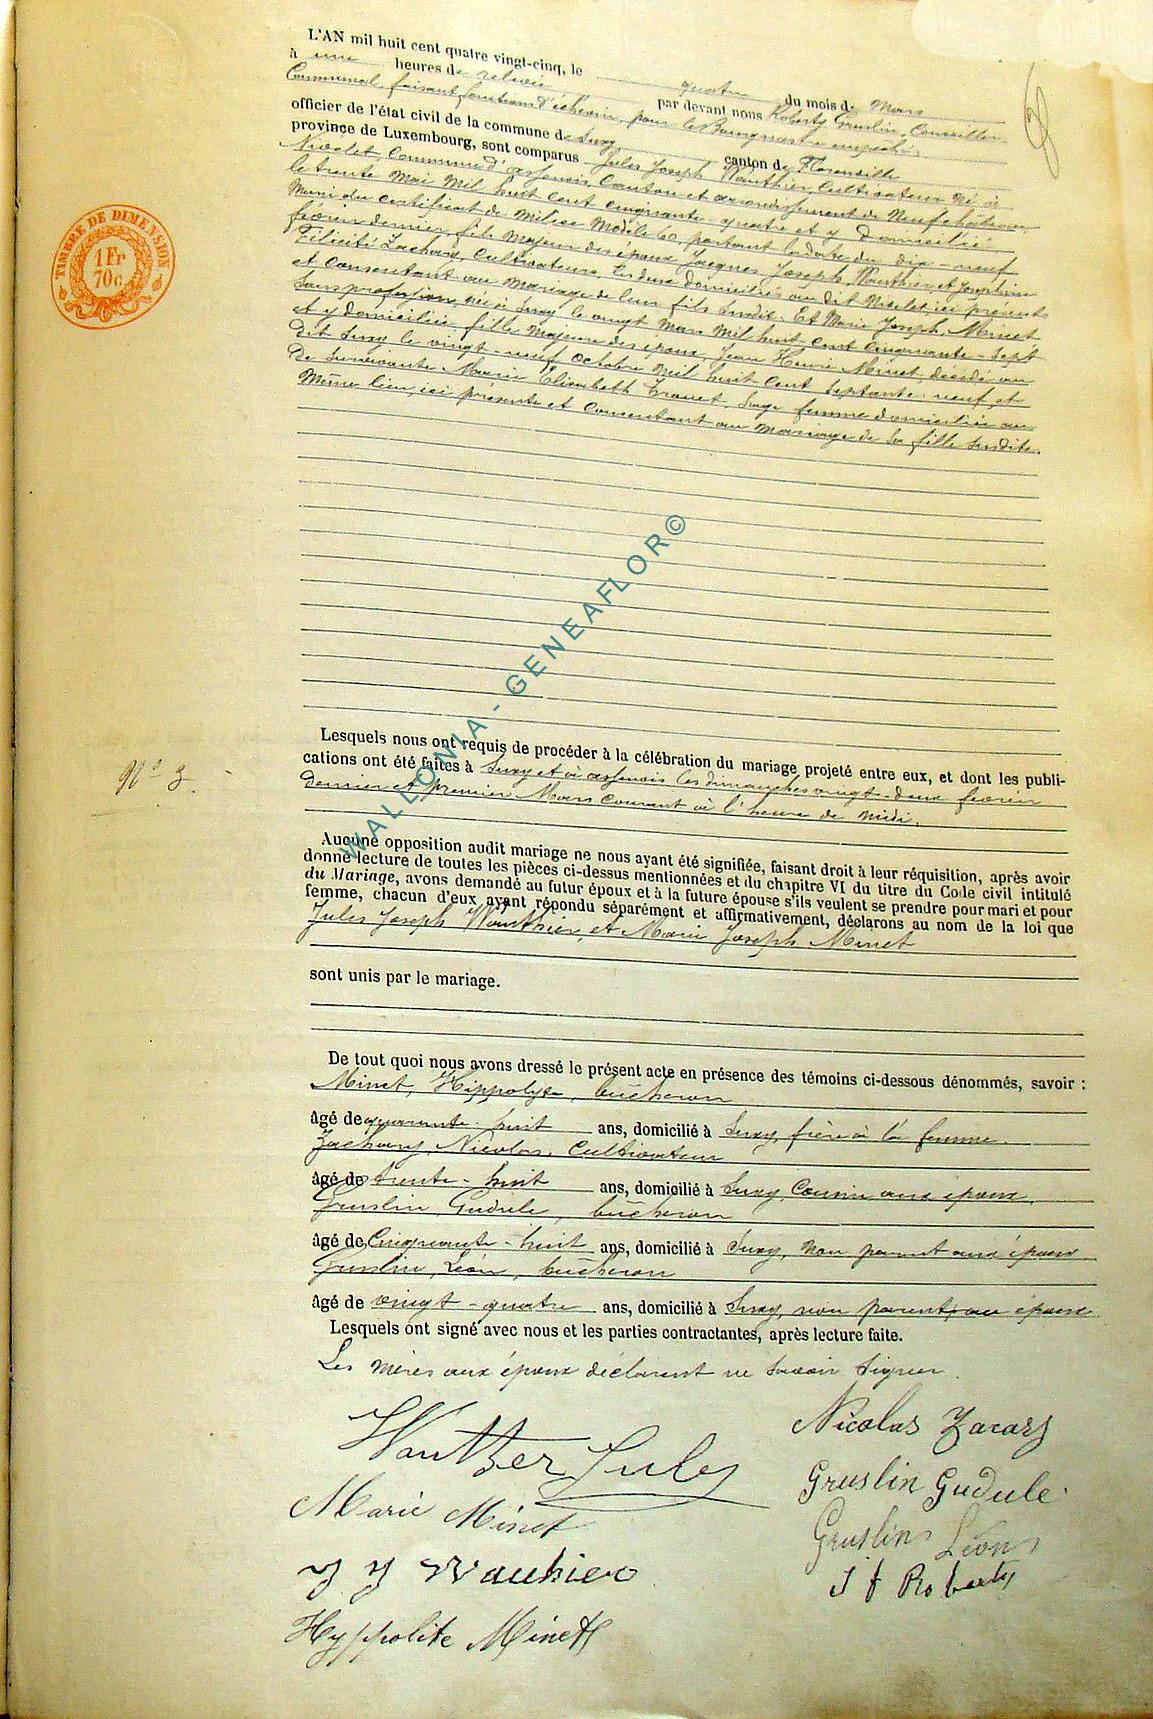 L'AN mil huit cent quatre vingt-cinq, le quatre du mois de Mars
à une heures de relevée par devant nous Roberty Gruslin, Conseiller
Communal, faisant fonctions d'échevin, pour le Bourgmestre empêché,
officier de l'état civil de la commune de Suxy canton de Florenville
province de Luxembourg, sont comparus Jules Joseph Wauthier, Cultivateur né à
Nivolet, Commune d'assenois, Canton et arrondissement de Neufchâteau
le trente Mai Mil huit cent cinquante-quatre et y domicilié
Muni du certificat de Milice Modèle 60, portant la date du dix-neuf
février dernier, fils Majeur des époux Jacques Joseph Wauthier et Joséphine
Félicité Zachary, Cultivateurs, les deux domiciliés au dit Nivolet, ici présents
et consentant au Mariage de leur fils susdit. Et Marie Joseph Minet
Sans profession, née à Suxy le vingt Mars Mil huit cent cinquante-sept
et y domiciliée, fille Majeure des époux Jean Henri Minet, décédé au
dit Suxy le vingt-neuf octobre Mil huit cent septante-neuf et
de survivante Marie Elisabeth Sage femme domiciliée au
Même lieu, ici présente et consentant au Mariage de sa fille susdite.
TIMBRE DE DIMENSION
1 Fr
70 c
WALLONIA - GENEAFLOR©
Lesquels nous ont requis de procéder à la célébration du mariage projeté entre eux, et dont les publi-
N° 3.
cations ont été faites à Suxy et à assenois les dimanches vingt-deux février
dernier et premier Mars courant à l'heure de Midi.
Aucune opposition audit mariage ne nous ayant été signifiée, faisant droit à leur réquisition, après avoir
donné lecture de toutes les pièces ci-dessus mentionnées et du chapitre VI du titre du Code civil intitulé
du Mariage, avons demandé au futur époux et à la future épouse s'ils veulent se prendre pour mari et pour
femme, chacun d'eux ayant répondu séparément et affirmativement, déclarons au nom de la loi que
Jules Joseph Wauthier, et Marie Joseph Minet
sont unis par le mariage.
De tout quoi nous avons dressé le présent acte en présence des témoins ci-dessous dénommés, savoir :
Minet, Hippolyte, bûcheron
âgé de quarante-huit ans, domicilié à Suxy, frère à la femme.
Zachary, Nicolas, Cultivateur
âgé de trente-huit ans, domicilié à Suxy, Cousin aux époux.
Gruslin, Gudule, bûcheron
âgé de Cinquante-huit ans, domicilié à Suxy, non parent aux époux
Gruslin, Léon, bucheron
âgé de vingt-quatre ans, domicilié à Suxy, non parent au époux
Lesquels ont signé avec nous et les parties contractantes, après lecture faite.
Les mères aux époux déclarent ne savoir signer.
Wautier Jules
Nicolas Zacary
Marie Minet
Gruslin Gudule
J J Wauthier
Gruslin Léon
Hyppolite Minet
J f Roberty